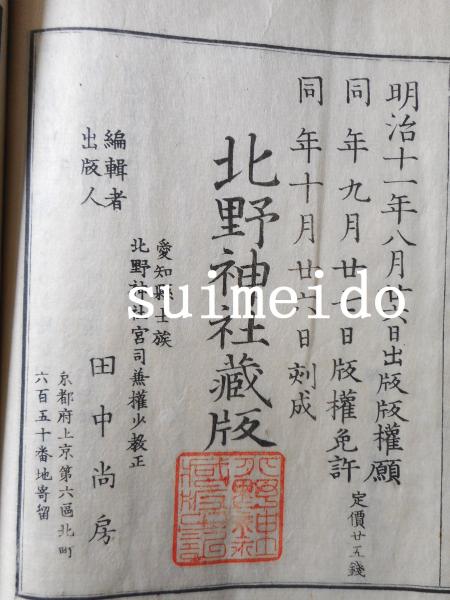 明治十一年八月廿六日出版版權願
同年九月廿七日版權免許
定價廿五錢
同年十月廿六日刻成
北野神社藏版
愛知縣士族
北野神社宮司兼權少教正
編輯者
出版人
田中尚房
京都府上京第六區北町
六百五十番地寄留
suimeido